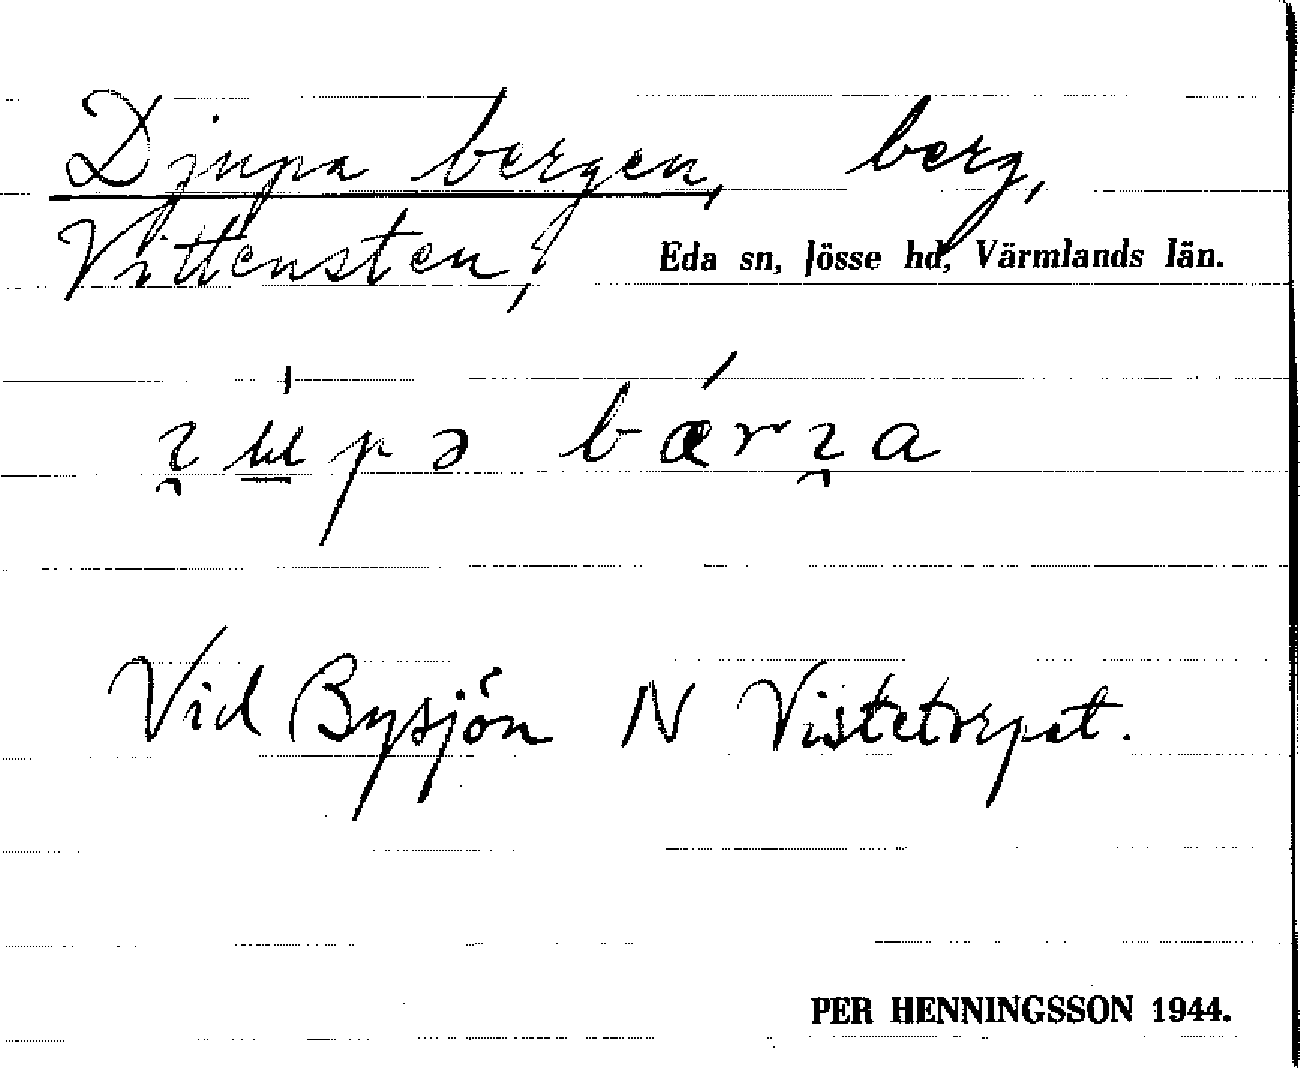 Djupa bergen, berg,
Vittensten,
Eda sn, Jösse hd, Värmlands län.
Vid Bysjön N Vistetorpet.
PER HENNINGSSON 1944.